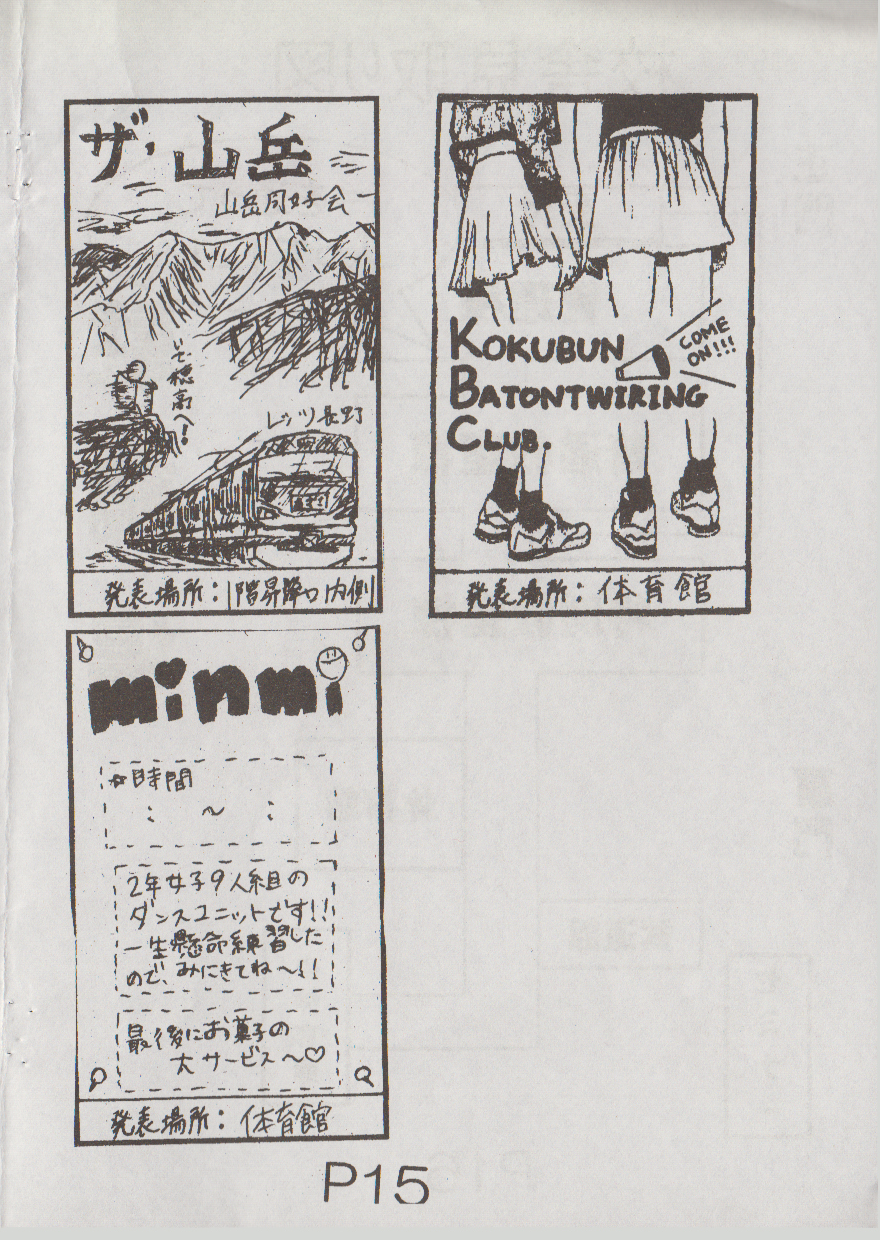 ザ・山岳
山岳同好会
いざ穂高へ!
レッツ長野
発表場所:1階昇降口内側
KOKUBUN
BATONTWIRING
CLUB.
COME
ON!!!
発表場所:体育館
minmi
☆時間
: ~ :
2年女子9人組の
ダンスユニットです!!
一生懸命練習した
ので、みにきてね~!!
最後にお菓子の
大サービス~♡
発表場所:体育館
P15